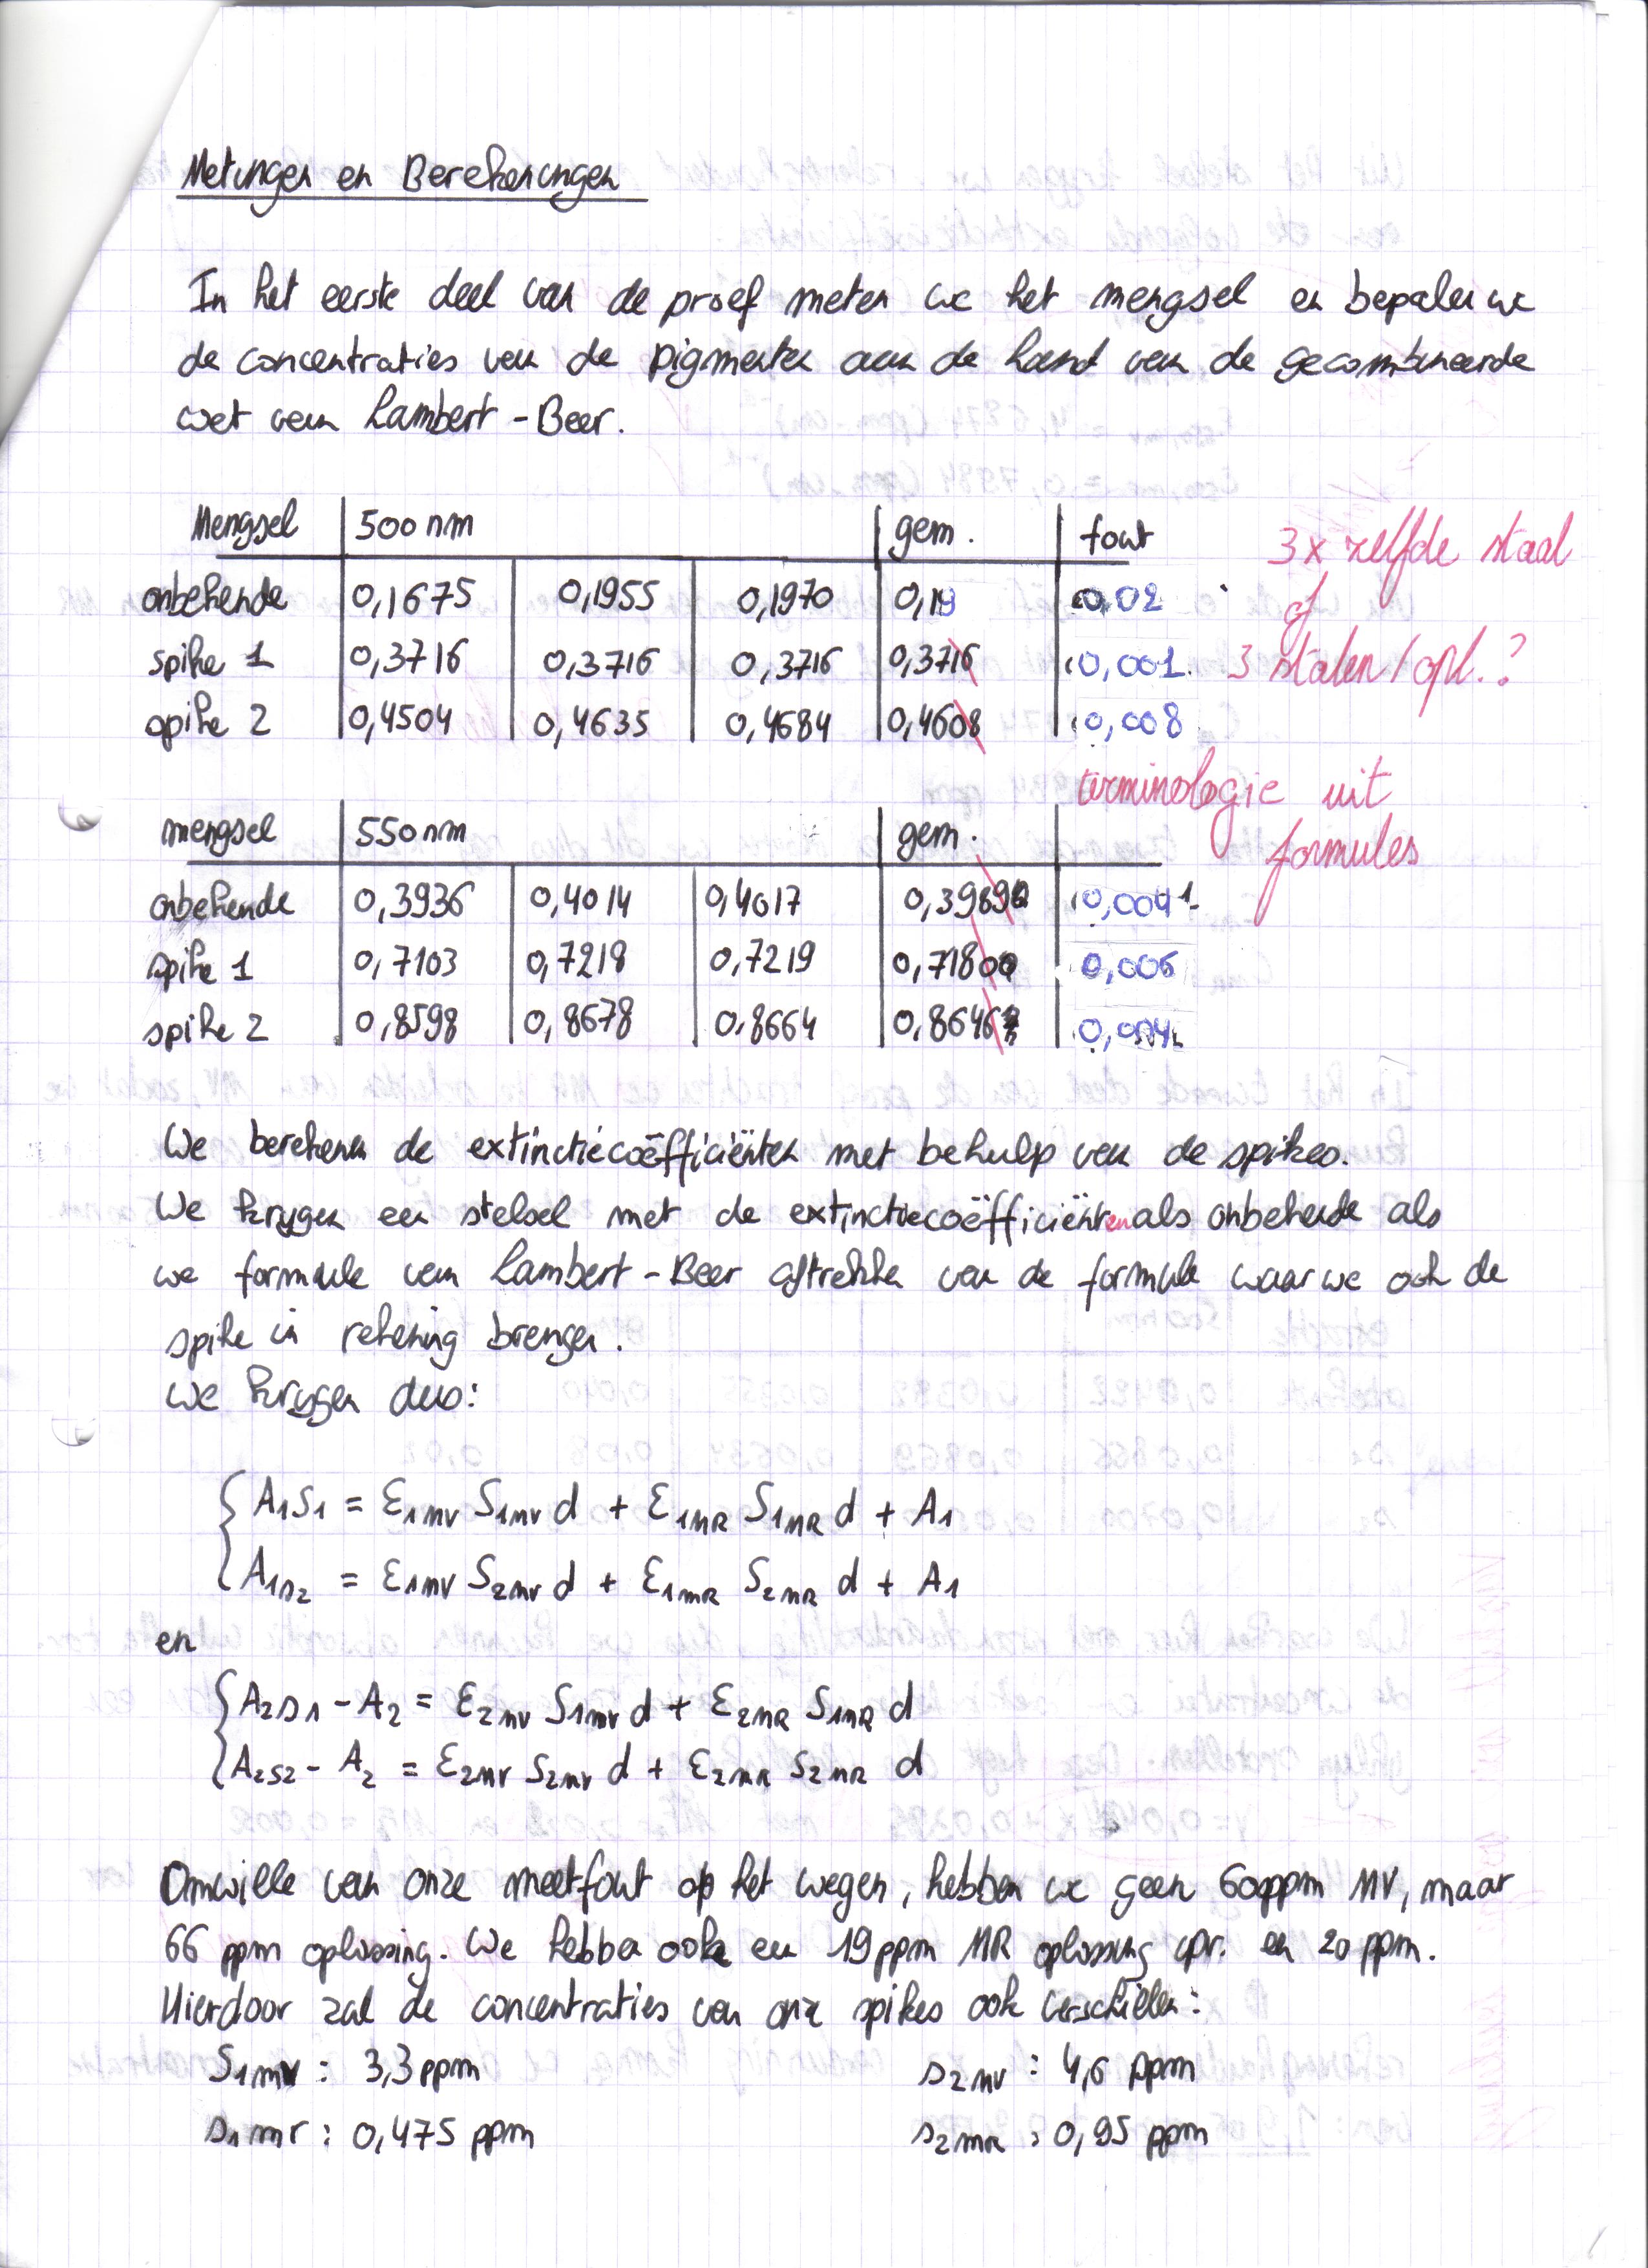 Metingen en Berekeningen
In het eerste deel van de proef meten we het mengsel en bepalen we
de concentraties van de pigmenten aan de hand van de gecombineerde
wet van Lambert-Beer.
Mengsel 500 nm gem. fout
onbekende 0,1675 0,1955 0,1970 0,19 0,02
spike 1 0,3716 0,3716 0,3716 0,3716 0,001
spike 2 0,4504 0,4635 0,4684 0,4608 0,008
3x zelfde staal
of
3 stalen / opl. ?
terminologie uit
formules
mengsel 550 nm gem.
onbekende 0,3936 0,4014 0,4017 0,3989 0,004
spike 1 0,7103 0,7218 0,7219 0,7180 0,006
spike 2 0,8598 0,8678 0,8664 0,8646 0,004
We berekenen de extinctiecoëfficiënten met behulp van de spikes.
We krijgen een stelsel met de extinctiecoëfficiënten als onbekende als
we formule van Lambert-Beer aftrekken van de formule waar we ook de
spike in rekening brengen.
We krijgen dus:
A1S1 = ε1MV S1MV d + ε1MR S1MR d + A1
A1S2 = ε1MV S2MV d + ε1MR S2MR d + A1
en
A2S1 - A2 = ε2MV S1MV d + ε2MR S1MR d
A2S2 - A2 = ε2MV S2MV d + ε2MR S2MR d
Omwille van onze meetfout op het wegen, hebben we geen 60ppm MV, maar
66 ppm oplossing. We hebben ook een 19ppm MR oplossing ipv. een 20 ppm.
Hierdoor zal de concentraties van onze spikes ook verschillen:
S1mv : 3,3 ppm s2mv : 4,6 ppm
s1mr : 0,475 ppm s2mr : 0,95 ppm